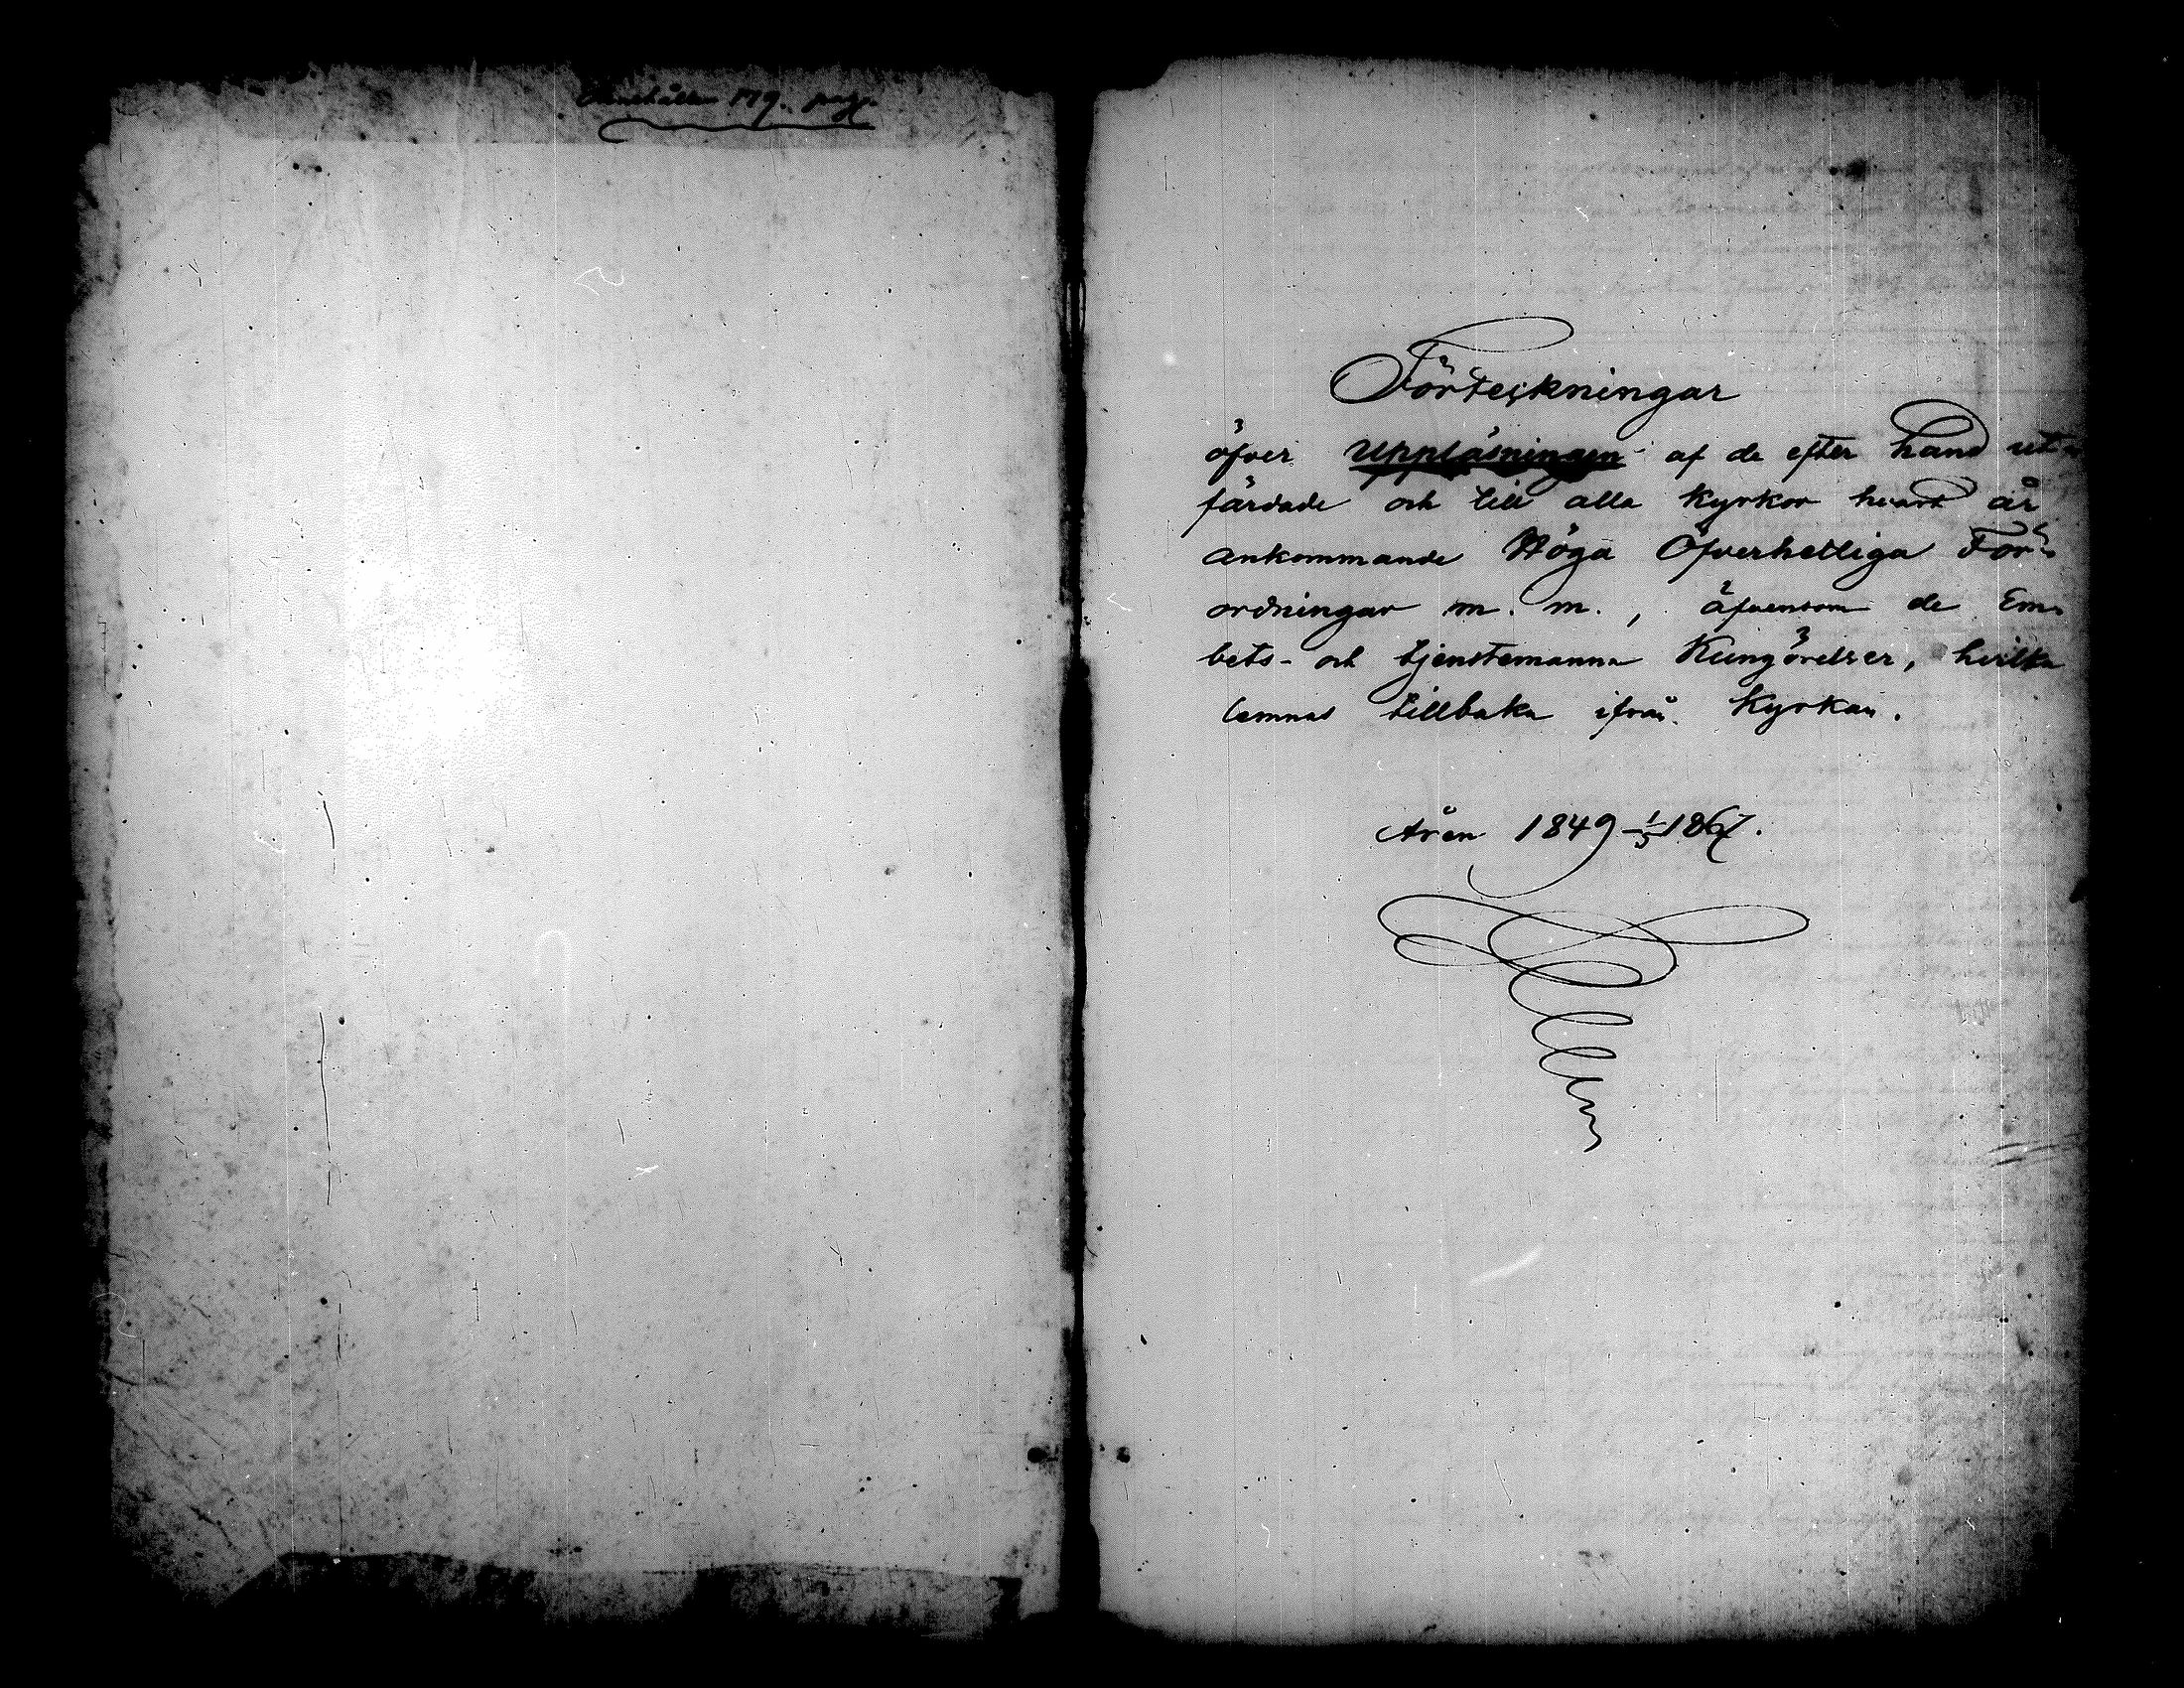 Innehåller 179. pag.
Förteckningar
öfver Uppläsningen af de efter hand ut-
färdade och till alla Kyrkor hvart år
ankommande Höga Öfverhetliga För-
ordningar m. m., äfvensom de Em-
bets- och tjenstemanna Kungörelser, hvilka
lemnas tillbaka ifrån Kyrkan.
Åren 1849 - 1/5 1867.